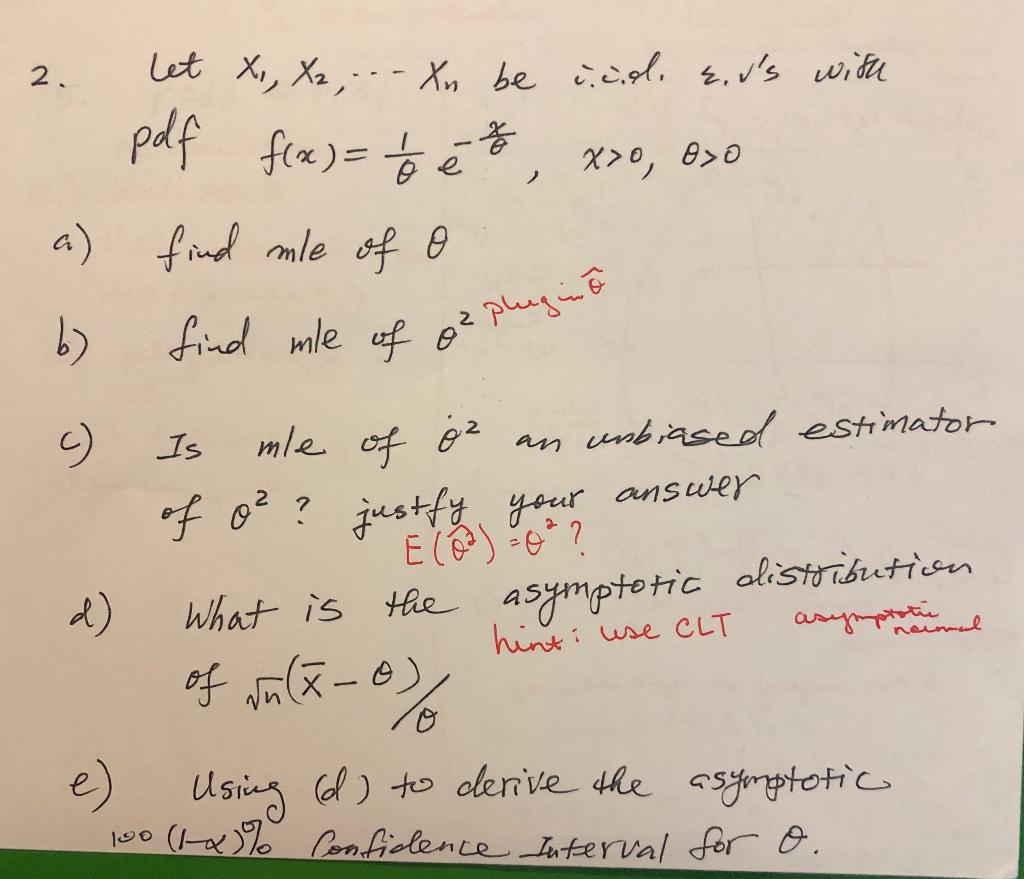 2. Let X₁, X₂, --- Xₙ be i.i.d. r.v's with
pdf f(x) = 1/θ e^(-x/θ), x>0, θ>0
a) find mle of θ
b) find mle of θ² plug in θ̂
c) Is mle of θ² an unbiased estimator
of θ² ? justfy your answer
E(θ̂²) = θ² ?
d) What is the asymptotic distribution
hint: use CLT asymptotic normal
of √n(x̄ - θ)/θ
e) Using (d) to derive the asymptotic
100 (1-α)% Confidence Interval for θ.